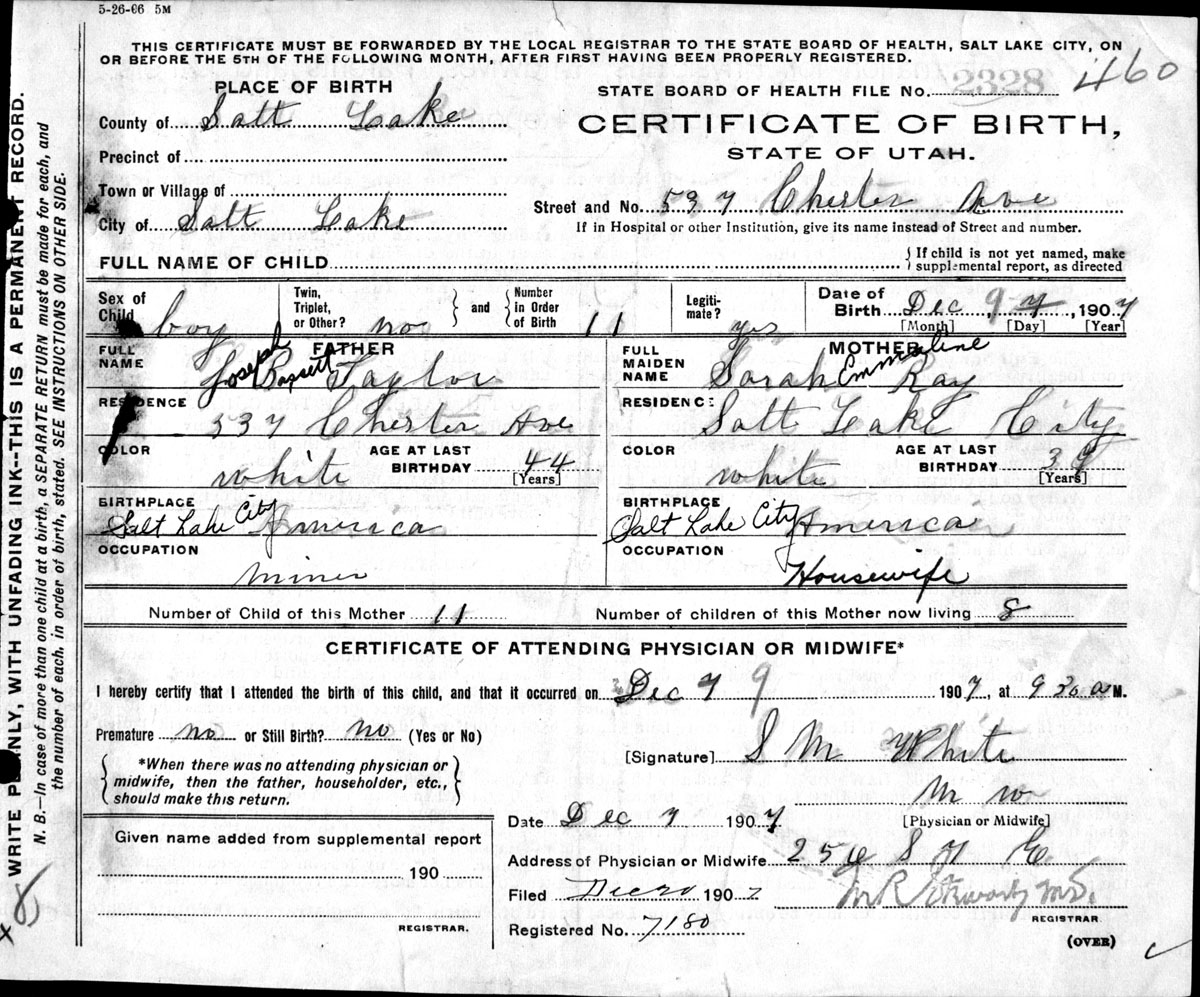 5-26-06 5M
THIS CERTIFICATE MUST BE FORWARDED BY THE LOCAL REGISTRAR TO THE STATE BOARD OF HEALTH, SALT LAKE CITY, ON
OR BEFORE THE 5TH OF THE FOLLOWING MONTH, AFTER FIRST HAVING BEEN PROPERLY REGISTERED.
460
PLACE OF BIRTH
STATE BOARD OF HEALTH FILE No. 2328
County of Salt Lake
CERTIFICATE OF BIRTH,
STATE OF UTAH.
Precinct of
Town or Village of
City of Salt Lake
Street and No. 537 Chester Ave
If in Hospital or other Institution, give its name instead of Street and number.
FULL NAME OF CHILD
If child is not yet named, make
supplemental report, as directed
Sex of Child boy
Twin, Triplet, or Other? no and Number in Order of Birth 11
Legiti-mate? yes
Date of Birth Dec 9 7, 1907
[Month] [Day] [Year]
FATHER
FULL NAME Joseph Bassett Taylor
MOTHER
FULL MAIDEN NAME Sarah Emmaline Ray
RESIDENCE 537 Chester Ave
RESIDENCE Salt Lake City
COLOR white AGE AT LAST BIRTHDAY 44 [Years]
COLOR white AGE AT LAST BIRTHDAY 39 [Years]
BIRTHPLACE Salt Lake City America
BIRTHPLACE Salt Lake City America
OCCUPATION miner
OCCUPATION Housewife
Number of Child of this Mother 11 Number of children of this Mother now living 8
CERTIFICATE OF ATTENDING PHYSICIAN OR MIDWIFE*
I hereby certify that I attended the birth of this child, and that it occurred on Dec 7 9 1907, at 9 30 a M.
Premature no or Still Birth? no (Yes or No)
[Signature] S M White
*When there was no attending physician or
midwife, then the father, householder, etc.,
should make this return.
M W
[Physician or Midwife]
Date Dec 7 1907
Given name added from supplemental report
190
REGISTRAR.
Address of Physician or Midwife 256 S 7 E
Filed Dec 20 1907
M.D.
REGISTRAR.
Registered No. 7180
(OVER)
WRITE PLAINLY, WITH UNFADING INK--THIS IS A PERMANENT RECORD.
N. B.—In case of more than one child at a birth, a SEPARATE RETURN must be made for each, and
the number of each, in order of birth, stated. SEE INSTRUCTIONS ON OTHER SIDE.